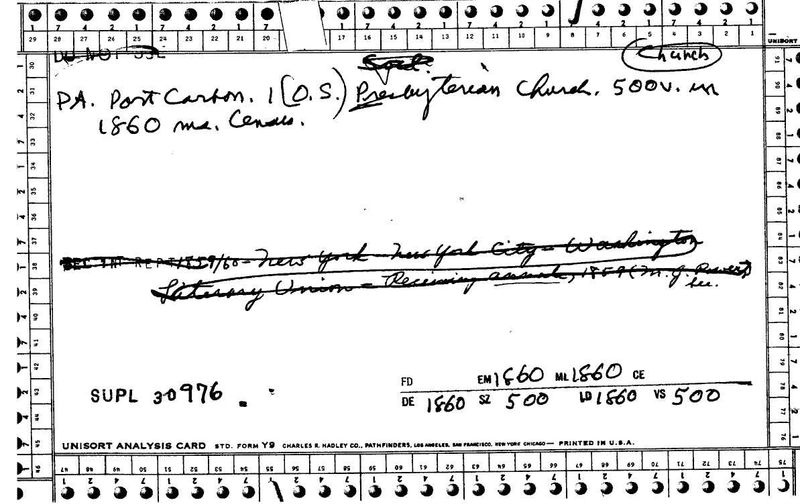 7 4 2 1 7 4 2 1 7 4 2 1 7 4 2 1 7 4 2 1 7 4 2 1
29 28 27 26 25 24 23 22 21 20 17 16 15 14 13 12 11 10 9 8 7 6 5 4 3 2 1
UNISORT
DO NOT USE
Church
PA. Port Carbon. 1 (O.S.) Presbyterian Church. 500v. in
1860 ms. Census.
REPT 1859/60 - New York - New York City - Washington
Literary Union - Receiving, 1859 (M. J.
SUPL 30976
FD EM 1860 ML 1860 CE
DE 1860 SZ 500 LD 1860 VS 500
UNISORT ANALYSIS CARD STD. FORM Y9 CHARLES R. HADLEY CO., PATHFINDERS, LOS ANGELES, SAN FRANCISCO, NEW YORK CHICAGO — PRINTED IN U.S.A.
47 48 49 50 51 52 53 54 55 56 57 58 59 60 61 62 63 64 65 66 67 68 69 70 71 72 73 74 75